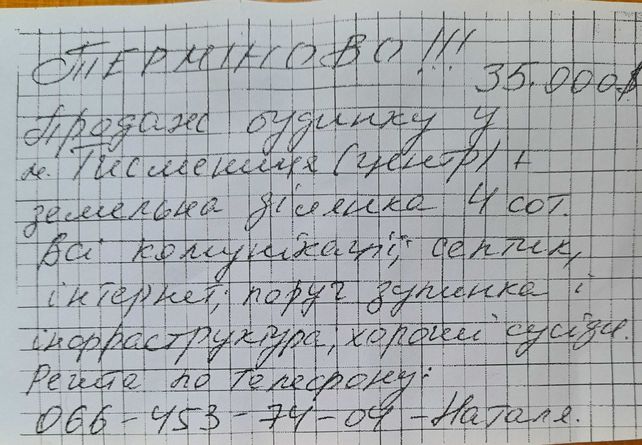 ТЕРМІНОВО!!!
35.000$
Продаж будинку у
м. Тисмениця (центр) +
земельна ділянка 4 сот.
Всі комунікації, септик,
інтернет, поруч зупинка і
інфраструктура, хороші сусіди.
Решта по телефону:
066-453-74-04 -Наталя.